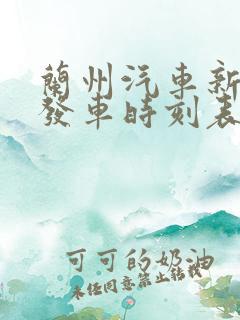 蘭州汽車新
發車時刻表
可可的奶油
未经同意禁止转载